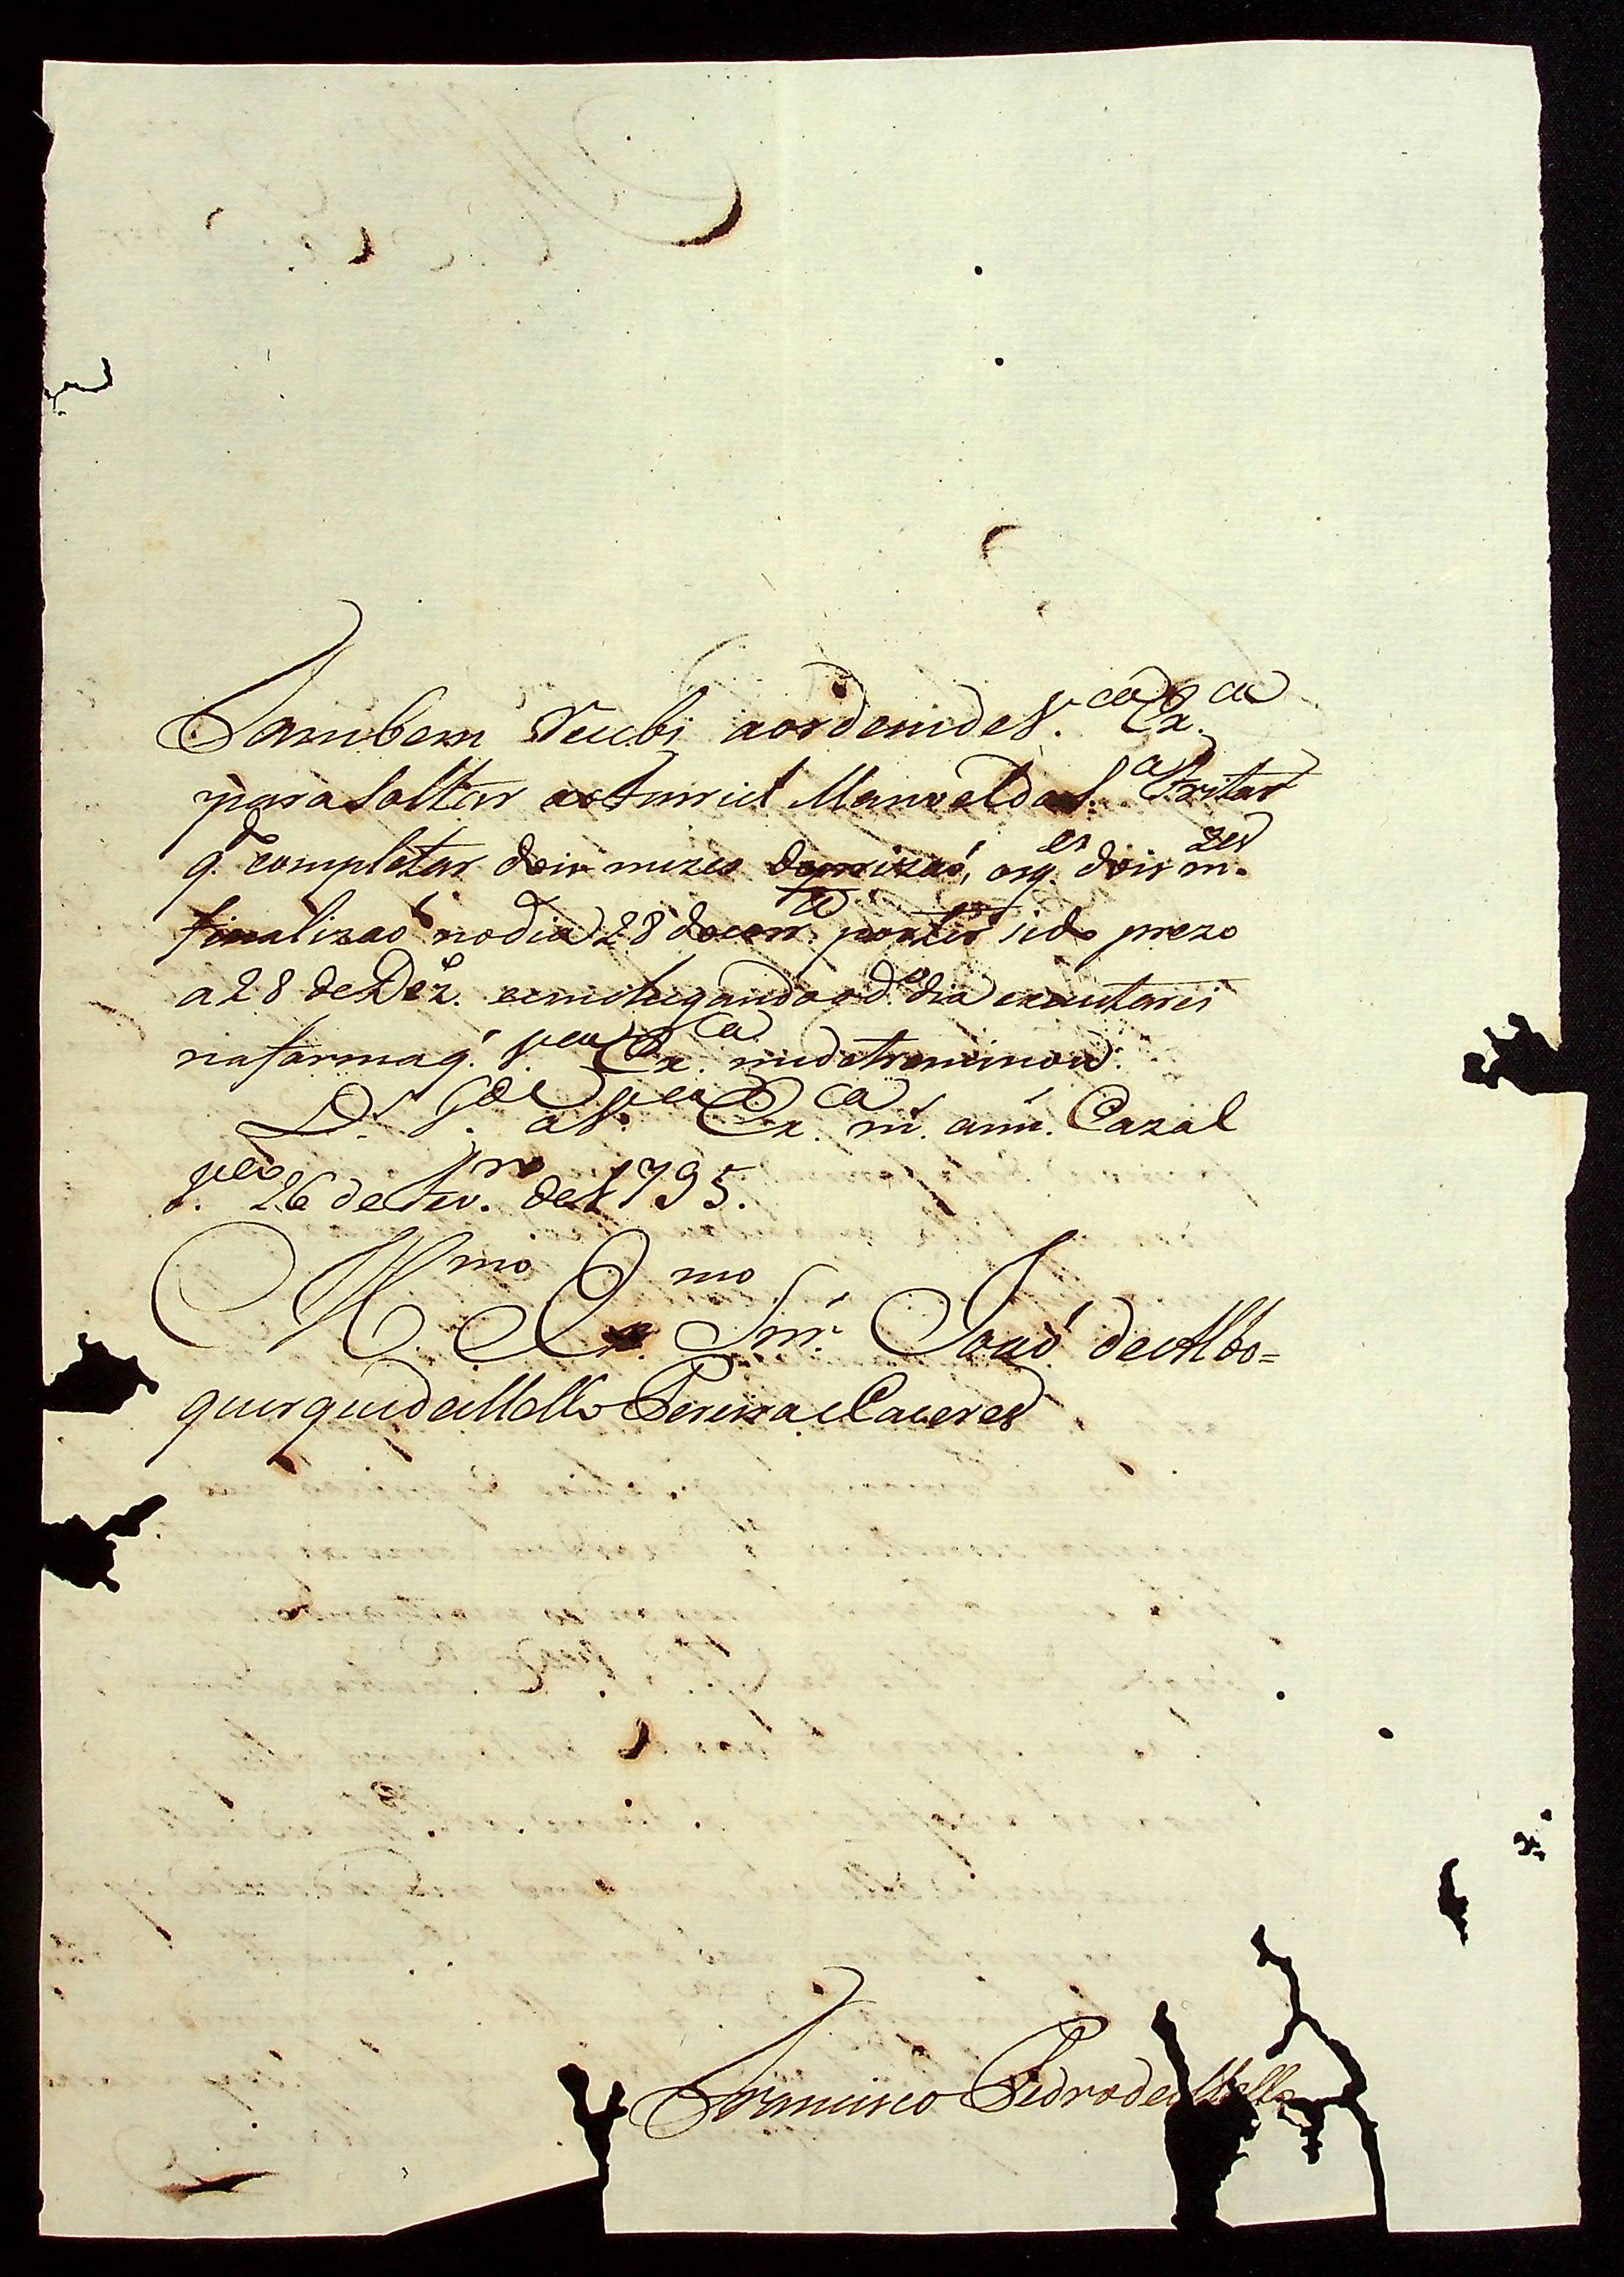 Tambem Recebi aordem de V.ca Ex.ca
para Soltar Manoel da S.a Fritas
q.do completar dois mezes deprizaõ, os q.es dois m.zes
finalizaõ nodia 28 docorr.e por ter sido prezo
a 28 de Dez.o echegando o d.o dia executarei
na forma q' V.ca Ex.ca me detreminou.
D.s G.de a V.ca Ex.ca m.' ann.' Cazal
V.co 26 de Fev.ro de 1795.
Ill.mo Ex.mo Snr.' Joaõ de Albo=
querque de Mello Pereira e Caceres
Francisco Pedro de Mello